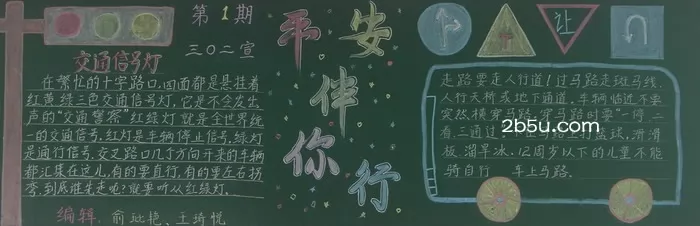 第1期
三〇二宣
交通信号灯
在繁忙的十字路口,四面都是悬挂着
红黄绿三色交通信号灯,它是不会发出
声的“交通警察”红绿灯就是全世界统
一的交通信号,红灯是车辆停止信号,绿灯
是通行信号,交叉路口几寸方向开来的车辆
都汇集在这儿,有的要直行,有的要左右拐
弯,到底谁先走呢?就要听从红绿灯。
编辑:俞 艳、王琦悦
平安
伴
你
行
让
走路要走人行道!过马路走斑马线、
人行天桥或地下通道,车辆临近不要
突然横穿马路,穿马路时要“一停二
看三通过” 球、滑滑
2b5u.com
板、溜旱冰,12周岁以下的儿童不能
骑自行 车上马路.